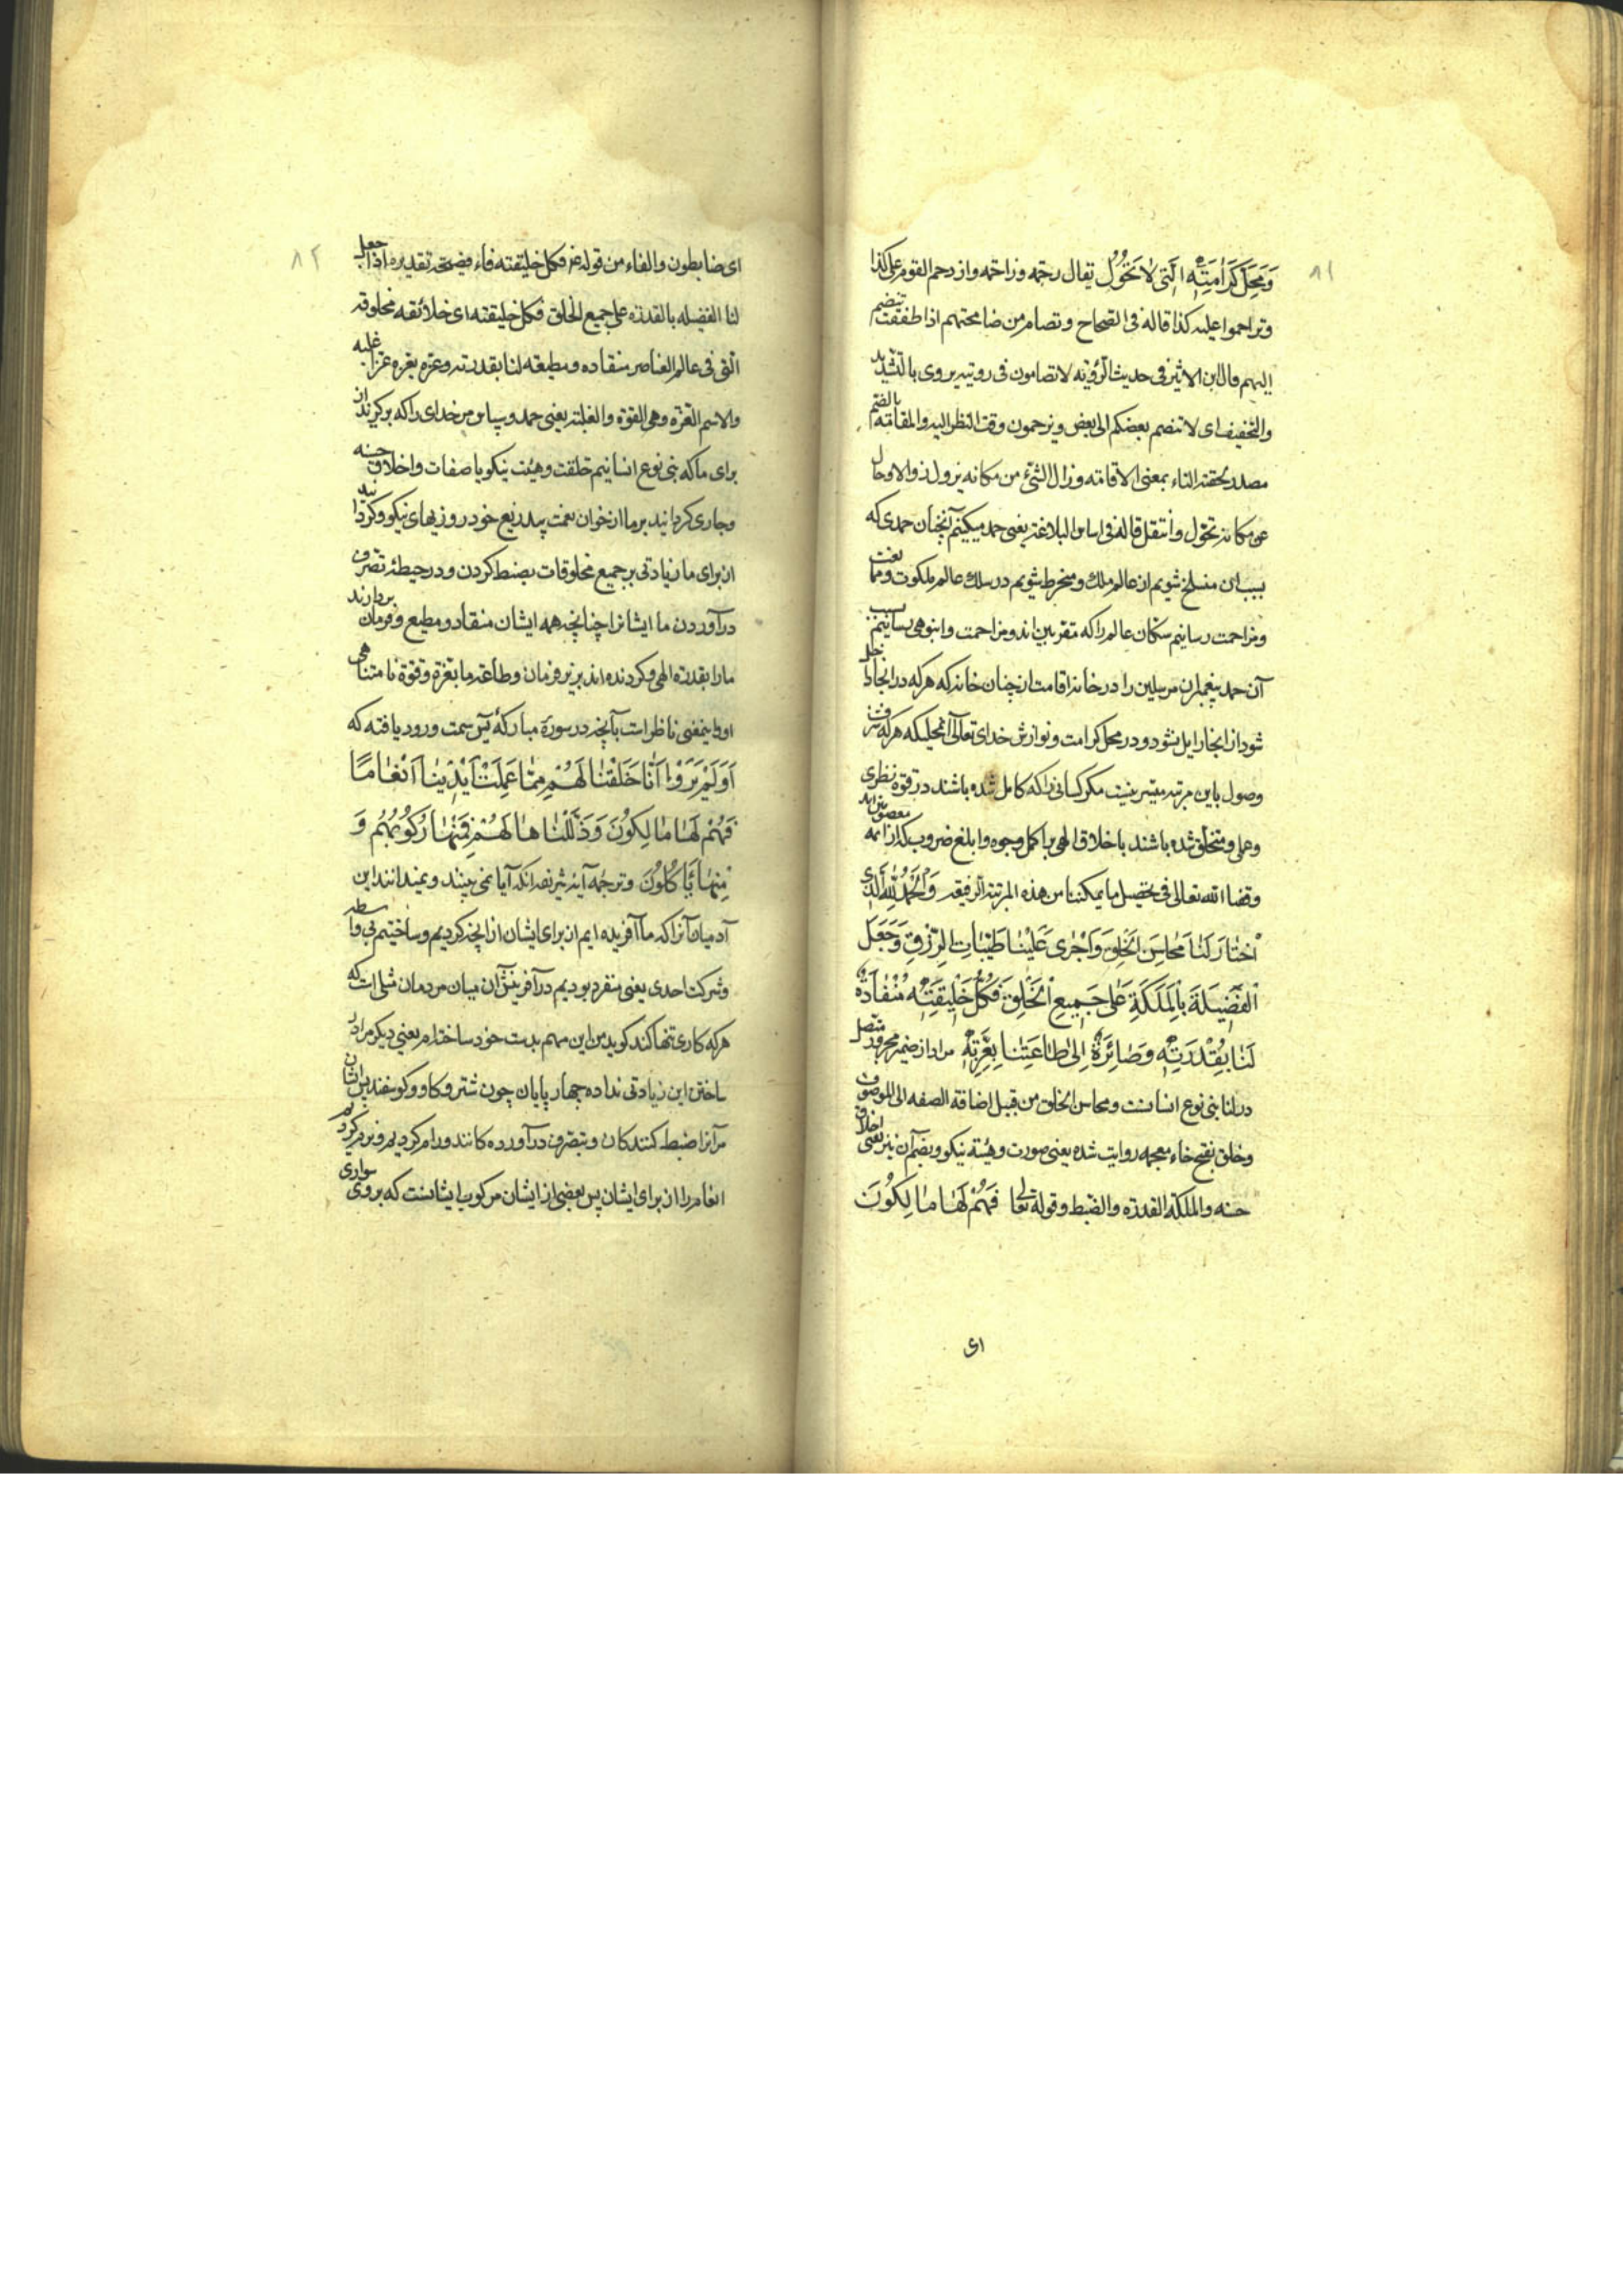 ٨١
وَمَحَلِّ كَرَامَتِهِ الَّتِي لَا تَحُوْلُ يقال زحمه وزاحمه وازدحم القوم على كذا
وتزاحموا عليه كذا قاله فى الصحاح وتضام من ضاممتهم اذا طفقت تنضم
اليهم قال ابن الاثير فى حديث الرؤية لا تضامون فى رويته يروى بالتشديد
والتخفيف اى لا تنضم بعضكم الى بعض و تزدحمون وقت النظر اليه والمقامة بالضم
مصدر لحقته التاء بمعنى الاقامة وزال الشئ من مكانه يزول زوالا وحال
عن مكانه تحوّل وانتقل قاله فى اساس البلاغة يعنى حمد ميكنيم آنچنان حمدى كه
بسبب ان منسلخ شويم از عالم ملك و منخرط شويم در سلك عالم ملكوت و
ومزاحمت رسانيم سكان عالم را كه مقربين اند و مزاحمت و انبوهى رسانيم بسبب
آن حمد پيغمبران مرسلين را در خانه اقامت انچنان خانه كه هر كه در انجا داخل
شود از انجا زايل نشود و در محل كرامت و نوازش خداى تعالى آنمحليكه هر كه
وصول باين مرتبه ميسر نيست مكر كسانى را كه كامل شده باشند در قوة نظرى
وعملى و متخلق شده باشند باخلاق الهى بر اكمل وجوه و ابلغ ضروب كه آن ائمه معصومين اند
وفقنا الله تعالى فى تحصيل ما يمكننا من هذه المرتبة الرفيعه وَالْحَمْدُ لِلّٰهِ الَّذِي
اخْتَارَ لَنَا مَحَاسِنَ الْخَلْقِ وَاَجْرٰى عَلَيْنَا طَيِّبَاتِ الرِّزْقِ وَجَعَلَ
لَنَا الْفَضِيلَةَ بِالْمَلَكَةِ عَلٰى جَمِيعِ الْخَلْقِ فَكُلُّ خَلِيقَتِهِ مُنْقَادَةٌ
لَنَا بِقُدْرَتِهِ وَصَائِرَةٌ اِلٰى طَاعَتِنَا بِعِزَّتِهِ مراد از ضمير مجرور متصل
در لنا بنى نوع انسانست و محاسن الخلق من قبيل اضافة الصفه الى الموصوف
وخلق بفتح خاء معجمه روايت شده يعنى صورت وهيئة نيكو و بضم آن نيز يعنى اخلاق
حسنه والملكة القدرة والضبط وقوله تعالى فَهُمْ لَهَا مَالِكُوْنَ
اى
٨٢
اى ضابطون والفاء من قوله فكل خليقته فاء فصيحة تقديره اذا جعل
لنا الفضيله بالقدرة على جميع الخلق فكل خليقته اى خلائقه مخلوقه
التى فى عالم العناصر منقاده و مطيعه لنا بقدرته وعزه يعزه عزا غلبه
والاسم العزة وهى القوة والغلبة يعنى حمد و سپاس مر خداى را كه بركزيد از
براى ما كه بنى نوع انسانيم خلقت وهيئت نيكو يا صفات و اخلاق حسنه
وجارى كردانيد بر ما از خوان نعمت بيدريغ خود روزيهاى نيكو و كردانيد
از براى ما زيادتى بر جميع مخلوقات بضبط كردن و در حيطه تصرف
درآوردن ما ايشانرا چنانچه همه ايشان منقاد و مطيع و فرمان بردارند
ما را بقدرة الهى و كردنده اند بزير فرمان وطاعة ما بعزة و قوة نامتناهى
او و اينمعنى ناظر است بآنچه در سورة مباركه يس سمت ورود يافته كه
اَوَلَمْ يَرَوْا اَنَّا خَلَقْنَا لَهُمْ مِمَّا عَمِلَتْ اَيْدِيْنَا اَنْعَامًا
فَهُمْ لَهَا مَالِكُوْنَ وَذَلَّلْنَاهَا لَهُمْ فَمِنْهَا رَكُوْبُهُمْ وَ
مِنْهَا يَأْكُلُوْنَ وترجمه آيه شريفه انكه آيا نمى بينند و نميدانند اين
آدميان آنرا كه ما آفريده ايم از براى ايشان از انچه كرديم و ساختيم بى واسطه
وشركت احدى يعنى منفرد بوديم در آفرينش آن ميان مردمان مثلى است كه
هر كه كارى تنها كند كويد من اين مهم بدست خود ساخته ام يعنى ديكر مرا در
ساختن اين زيادتى نداده چهار پايان چون شتر و كاو و كوسفند پس ايشان
مر آنرا ضبط كنندكان و بتصرف درآورده كانند و رام كرديم
انعام را از براى ايشان پس بعضى از ايشان مركوب ايشانست كه بر وى سوارى